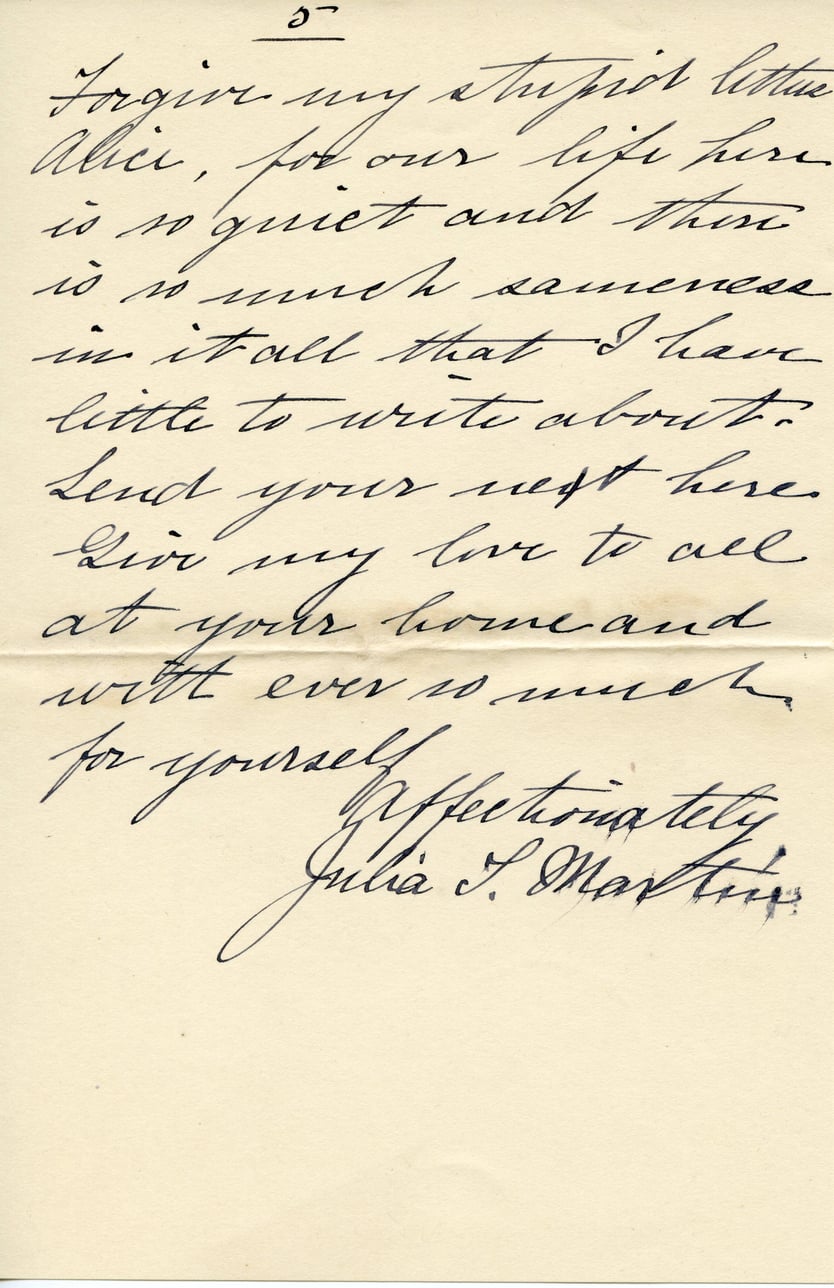 5
Forgive my stupid letters
Alice, for our life here
is so quiet and there
is so much sameness
in it all that I have
little to write about.
Send your next here.
Give my love to all
at your home and
with ever so much
for yourself
Affectionately
Julia T. Martin